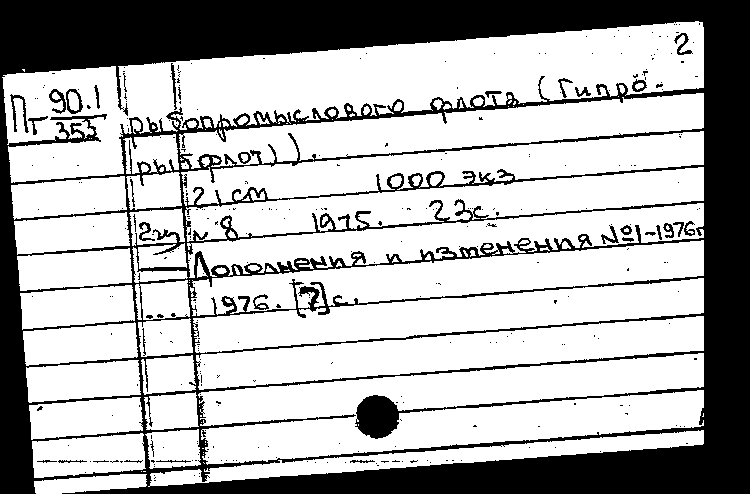 2
Пт 90.1
353
рыбопромыслового флота (Гипро-
рыбфлот)).
21 см 1000 экз
2экз № 8. 1975. 23с.
— Дополнения и изменения №1-1976г
... 1976. [7]с.